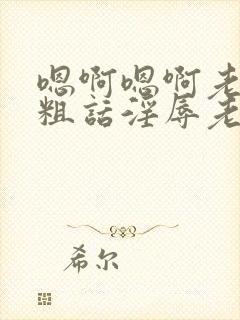 嗯啊嗯啊老
粗話淫辱老
希尔